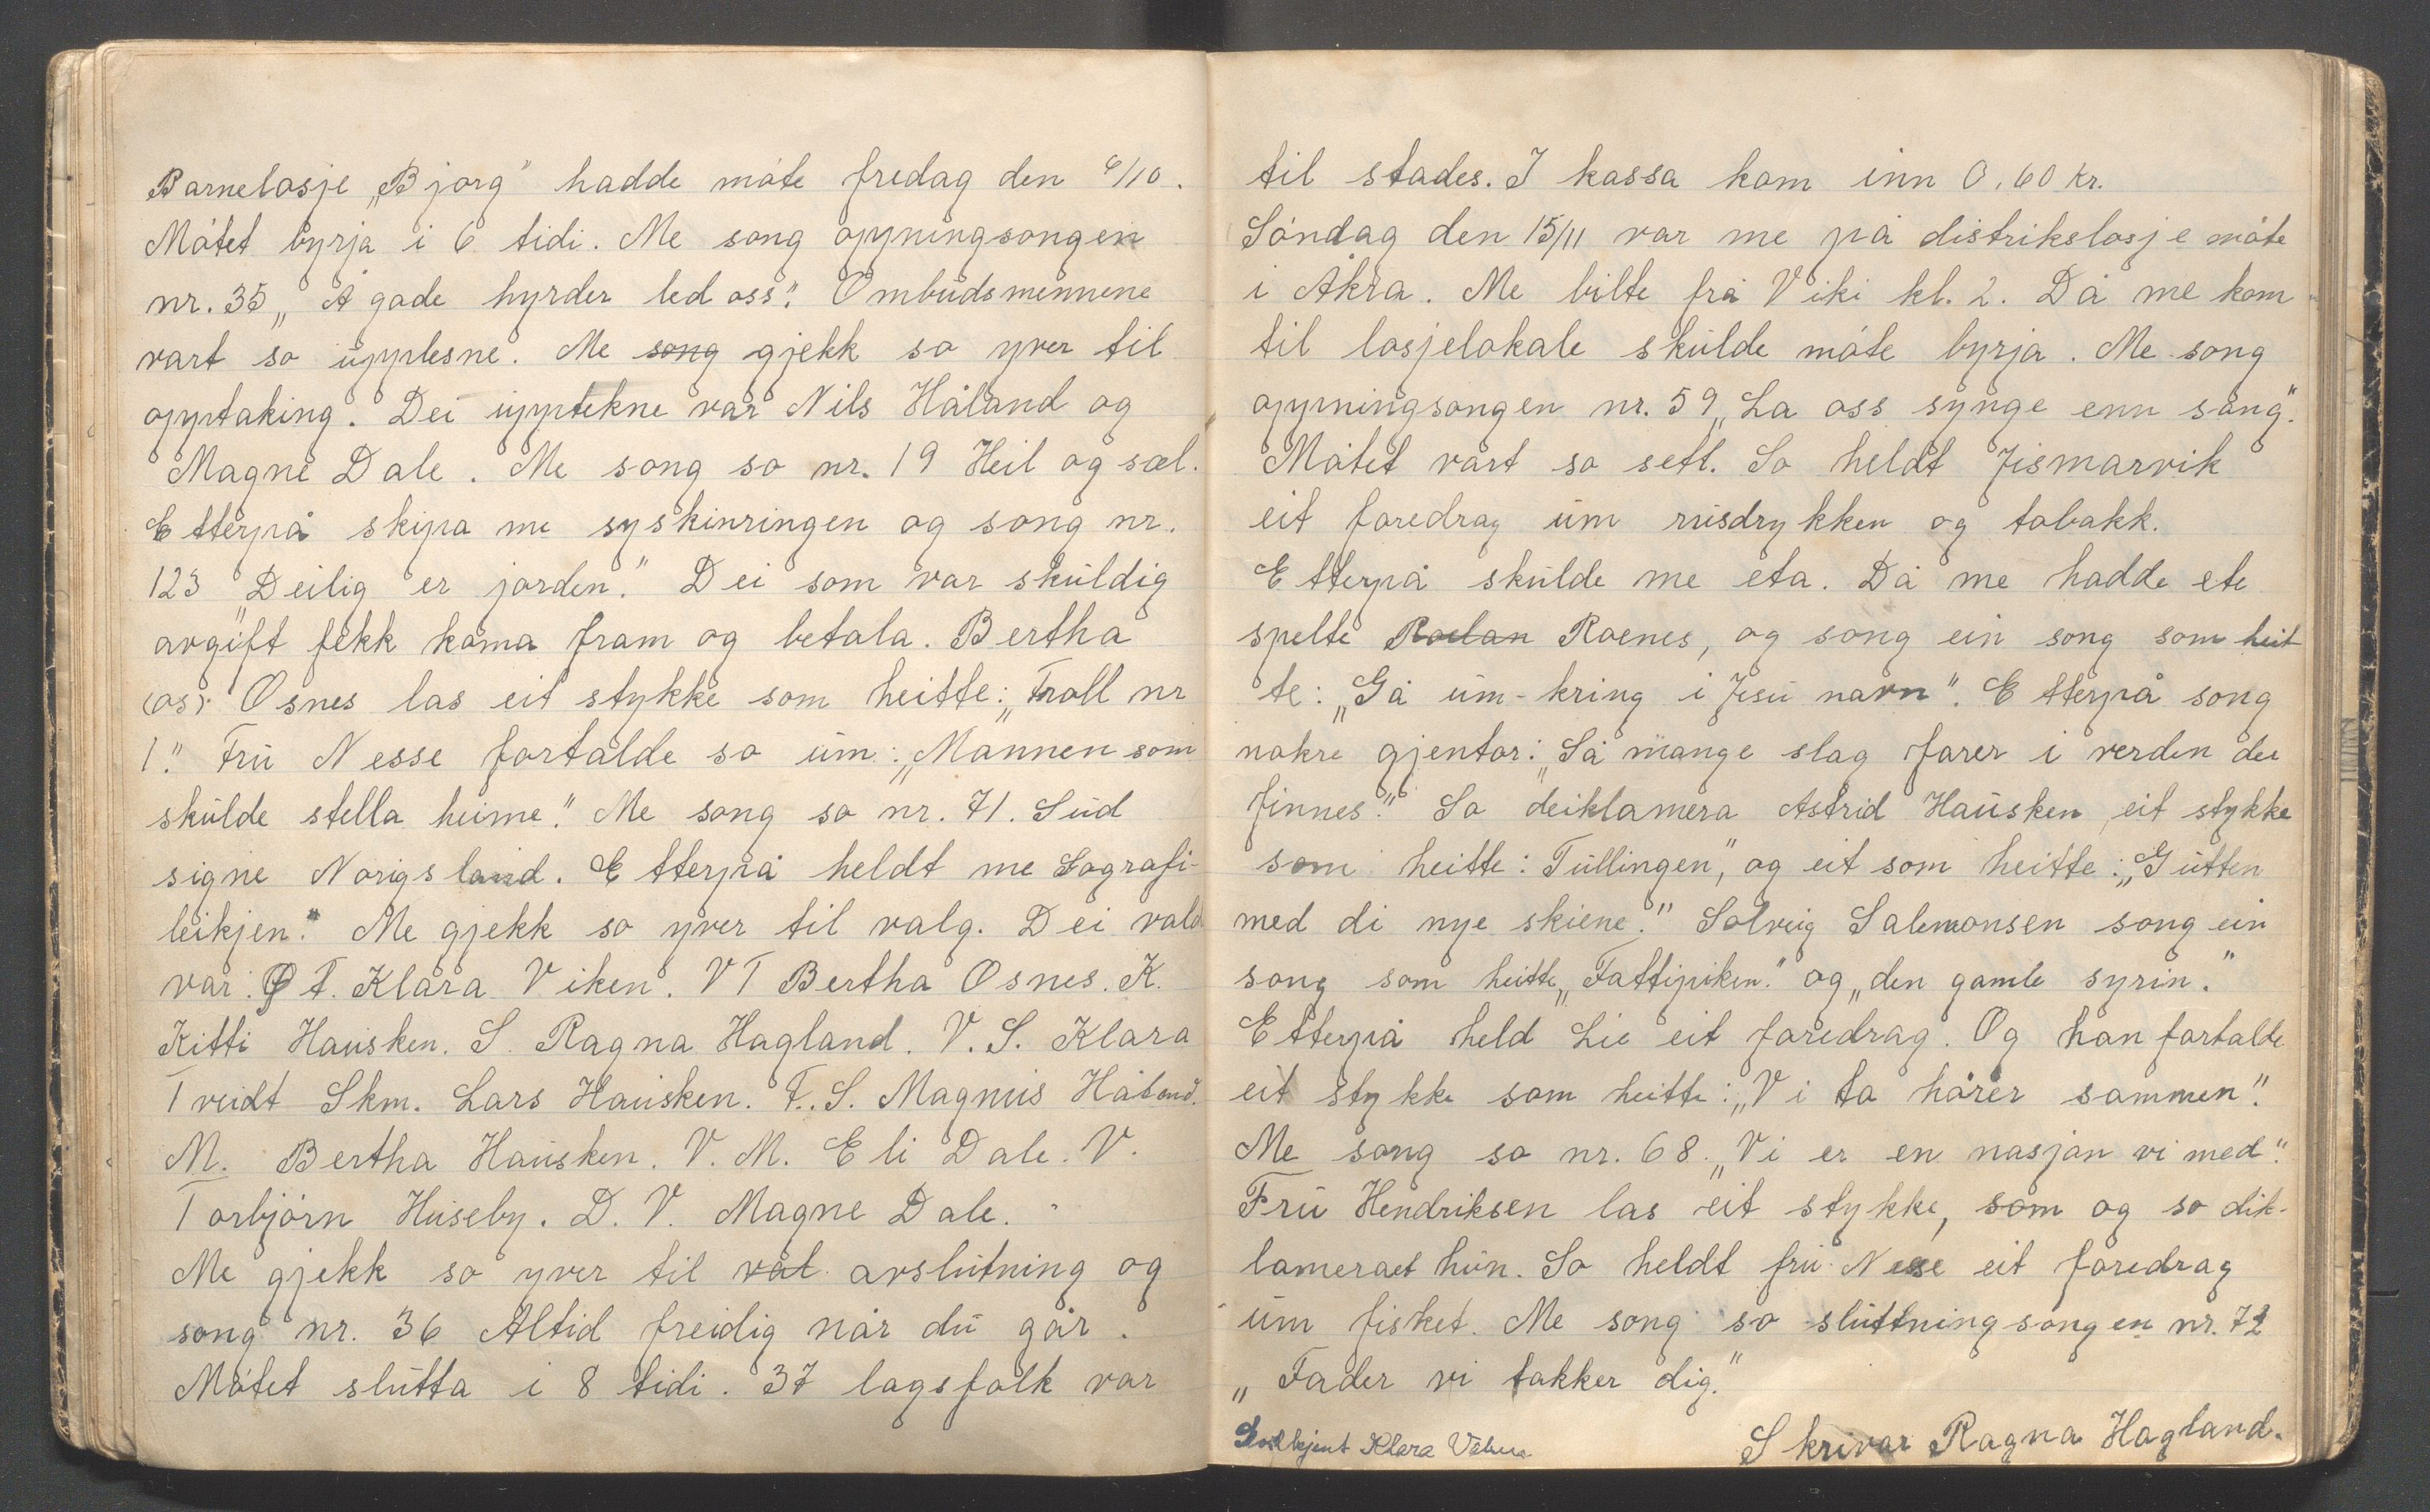 Barnelosje „Bjørg" hadde møte fredag den 6/10.
Møtet byrja i 6 tidi. Me song opningsongen
nr. 35 „Å gode hyrder led oss". Ombudsmennene
vart so upplesne. Me song gjekk so yver til
opptaking. Dei upptekne var Nils Håland og
Magne Dale. Me song so nr. 19 Heil og sæl.
Etterpå skipa me syskinringen og song nr.
123 „Deilig er jorden." Dei som var skuldig
avgift fekk koma fram og betala. Bertha
(os) Osnes las eit stykke som heitte: „Troll nr
1." Fru Nesse fortalde so um: „Mannen som
skulde stella heime." Me song so nr. 71. Gud
signe Norigs land. Etterpå heldt me Gografi-
leikjen." Me gjekk so yver til valg. Dei vald
var: Ø T. Klara Viken. VT Bertha Osnes. K.
Kitti Hausken. S. Ragna Hagland. V. S. Klara
Tveidt Skm. Lars Hausken. F. S. Magnus Håland.
M. Bertha Hausken. V. M. Eli Dale. V.
Torbjørn Huseby. D. V. Magne Dale.
Me gjekk so yver til val avslutning og
song nr. 36 Altid freidig når du går.
Møtet slutta i 8 tidi. 37 lagsfolk var
til stades. I kassa kom inn 0,60 kr.
Søndag den 15/11 var me på distrikslosje møte
i Åkra. Me bilte frå Viki kl. 2. Då me kom
til losjelokale skulde møte byrja. Me song
opningsongen nr. 59 „La oss synge enn sang".
Møtet vart so sett. So heldt Jismarvik
eit foredrag um rusdrykken og tobakk.
Etterpå skulde me eta. Då me hadde ete
spelte Roelan Roenes, og song ein song som heit
te: „Gå um-kring i Jesu navn". Etterpå song
nokre gjentor: „Så mange slag farer i verden der
finnes." So deiklamera Astrid Hausken eit stykke
som heitte: Tullingen", og eit som heitte: „Gutten
med di nye skiene." Solveig Salemonsen song ein
song som heitte „Fattipiken." og „den gamle syrin."
Etterpå held Lie eit foredrag. Og han fortalde
eit stykke som heitte: „Vi to hører sammen".
Me song so nr. 68. „Vi er en nasjon vi med".
Fru Hendriksen las eit stykke, som og so dik-
lameraet hun. So heldt fru Nesse eit foredrag
um fisket. Me song so sluttningsongen nr. 72
„Fader vi takker dig."
Godkjent Klara Viken
Skrivar Ragna Hagland.